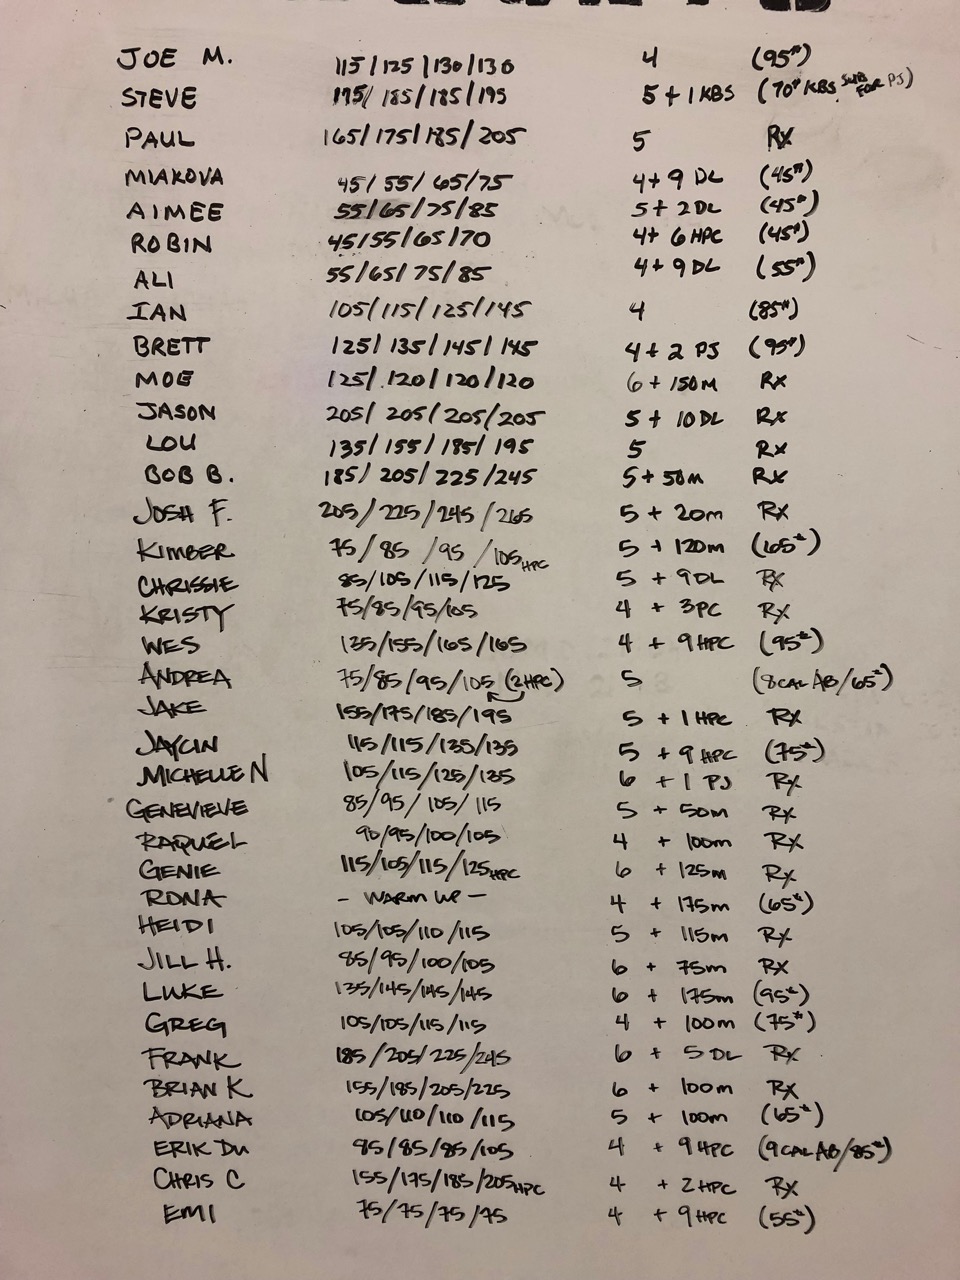 JOE M. 115/125/130/130 4 (95#)
STEVE 175/185/185/195 5+1 KBS (70# KBS SUB FOR PJ)
PAUL 165/175/185/205 5 Rx
MIAKOVA 45/55/65/75 4+9 DL (45#)
AIMEE 55/65/75/85 5+2DL (45#)
ROBIN 45/55/65/70 4+6HPC (45#)
ALI 55/65/75/85 4+9 DL (55#)
IAN 105/115/125/145 4 (85#)
BRETT 125/135/145/145 4+2 PJ (95#)
MOE 125/120/120/120 6+150M Rx
JASON 205/205/205/205 5+10DL Rx
LOU 135/155/185/195 5 Rx
BOB B. 185/205/225/245 5+50m Rx
JOSH F. 205/225/245/265 5 + 20m Rx
KIMBER 75/85/95/105 HPC 5 + 120m (65#)
CHRISSIE 85/105/115/125 5 + 9DL Rx
KRISTY 75/85/95/105 4 + 3PC Rx
WES 135/155/165/165 4 + 9HPC (95#)
ANDREA 75/85/95/105 (2HPC) 5 (8CAL AB/65#)
JAKE 155/175/185/195 5 + 1 HPC Rx
JAYCIN 115/115/135/135 5 + 9HPC (75#)
MICHELLE N 105/115/125/135 6 + 1 PJ Rx
GENEVIEVE 85/95/105/115 5 + 50m Rx
RAQUEL 90/95/100/105 4 + 100m Rx
GENIE 115/105/115/125 HPC 6 + 125m Rx
RONA - WARM UP - 4 + 175m (65#)
HEIDI 105/105/110/115 5 + 115m Rx
JILL H. 85/95/100/105 6 + 75m Rx
LUKE 135/145/145/145 6 + 175m (95#)
GREG 105/105/115/115 4 + 100m (75#)
FRANK 185/205/225/245 6 + 5DL Rx
BRIAN K 155/185/205/225 6 + 100m Rx
ADRIANA 105/110/110/115 5 + 100m (65#)
ERIK DU 85/85/85/105 4 + 9HPC (9CAL AB/85#)
CHRIS C 155/175/185/205 HPC 4 + 2HPC Rx
EMI 75/75/75/75 4 + 9HPC (55#)